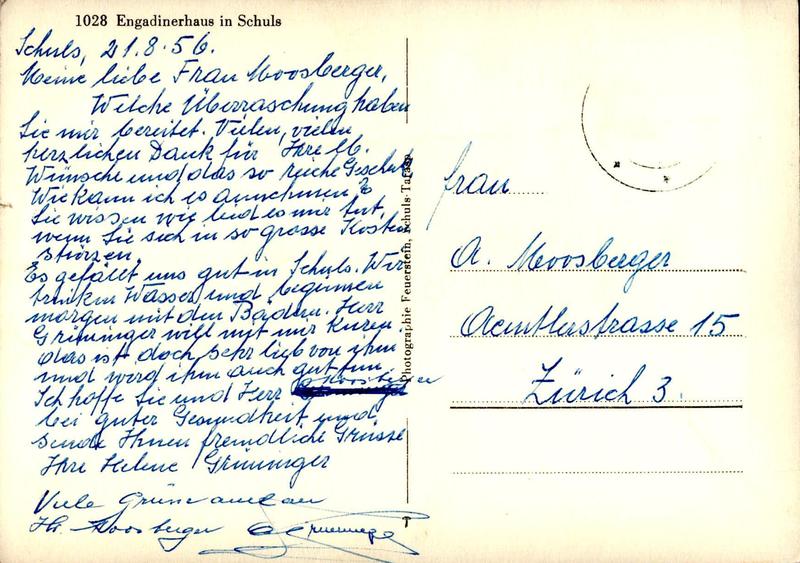 1028 Engadinerhaus in Schuls
Schuls, 21.8.56.
Meine liebe Frau Moosberger,
Welche Überraschung haben
Sie mir bereitet. Vielen, vielen
herzlichen Dank für Ihre lb.
Wünsche und das so reiche Geschenk
Wie kann ich es annehmen?
Sie wissen wie leid es mir tut,
wenn Sie sich in so grosse Kosten
stürzen.
Es gefällt uns gut in Schuls. Wir
trinken Wasser und beginnen
morgen mit den Bädern. Herr
Grüninger will mit mir kuren
das ist doch sehr lieb von ihm
und wird ihm auch gut tun
Ich hoffe Sie und Herr Moosberger
bei guter Gesundheit und
sende Ihnen freundliche Grüsse
Ihre Helene Grüninger
Viele Grüsse an
Hr. Moosberger
Photographie Feuerstein, Schuls-Tarasp
Frau
A. Moosberger
Aemtlerstrasse 15
Zürich 3.